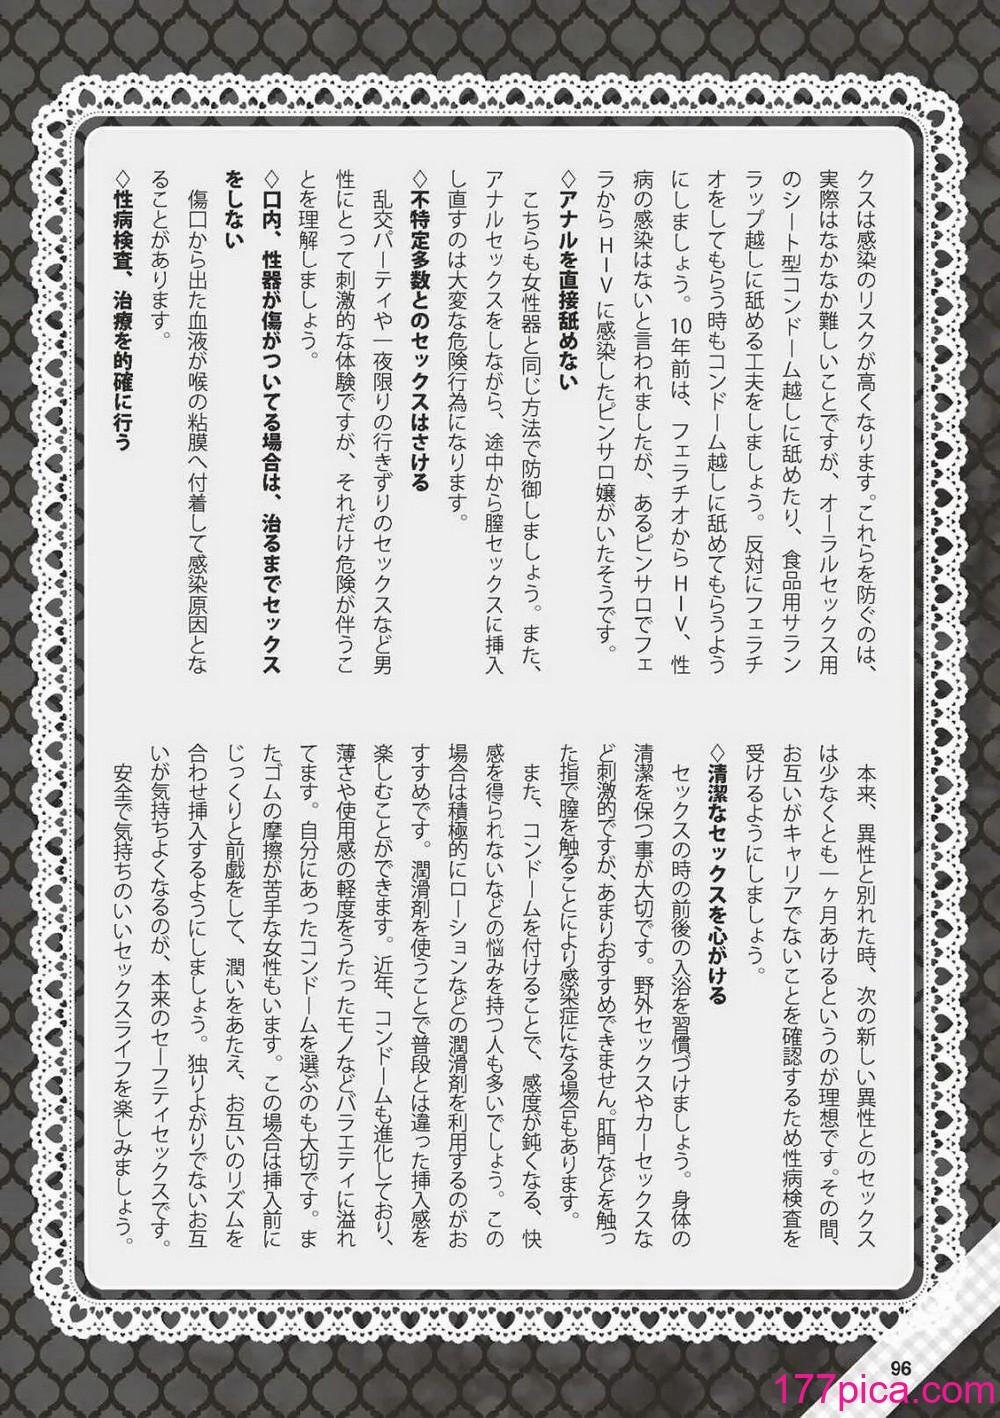 クスは感染のリスクが高くなります。これらを防ぐのは、
実際はなかなか難しいことですが、オーラルセックス用
のシート型コンドーム越しに舐めたり、食品用サラン
ラップ越しに舐める工夫をしましょう。反対にフェラチ
オをしてもらう時もコンドーム越しに舐めてもらうよう
にしましょう。10年前は、フェラチオからHIV、性
病の感染はないと言われましたが、あるピンサロでフェ
ラからHIVに感染したピンサロ嬢がいたそうです。
◇アナルを直接舐めない
こちらも女性器と同じ方法で防御しましょう。また、
アナルセックスをしながら、途中から膣セックスに挿入
し直すのは大変な危険行為になります。
◇不特定多数とのセックスはさける
乱交パーティや一夜限りの行きずりのセックスなど男
性にとって刺激的な体験ですが、それだけ危険が伴うこ
とを理解しましょう。
◇口内、性器が傷がついてる場合は、治るまでセックス
をしない
傷口から出た血液が喉の粘膜へ付着して感染原因とな
ることがあります。
◇性病検査、治療を的確に行う
本来、異性と別れた時、次の新しい異性とのセックス
は少なくとも一ヶ月あけるというのが理想です。その間、
お互いがキャリアでないことを確認するため性病検査を
受けるようにしましょう。
◇清潔なセックスを心がける
セックスの時の前後の入浴を習慣づけましょう。身体の
清潔を保つ事が大切です。野外セックスやカーセックスな
ど刺激的ですが、あまりおすすめできません。肛門などを触っ
た指で膣を触ることにより感染症になる場合もあります。
また、コンドームを付けることで、感度が鈍くなる、快
感を得られないなどの悩みを持つ人も多いでしょう。この
場合は積極的にローションなどの潤滑剤を利用するのがお
すすめです。潤滑剤を使うことで普段とは違った挿入感を
楽しむことができます。近年、コンドームも進化しており、
薄さや使用感の軽度をうたったモノなどバラエティに溢れ
てます。自分にあったコンドームを選ぶのも大切です。ま
たゴムの摩擦が苦手な女性もいます。この場合は挿入前に
じっくりと前戯をして、潤いをあたえ、お互いのリズムを
合わせ挿入するようにしましょう。独りよがりでないお互
いが気持ちよくなるのが、本来のセーフティセックスです。
安全で気持ちのいいセックスライフを楽しみましょう。
96
177pica.com